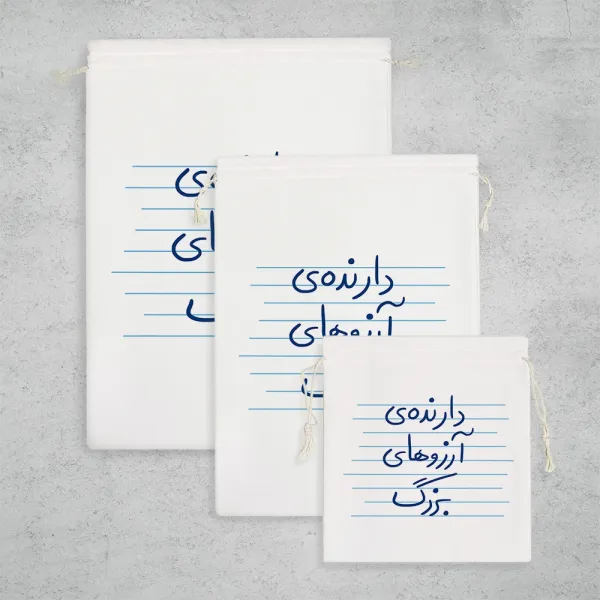 دارنده‌ی
آرزوهای
دارنده‌ی
آرزوهای
بزرگ